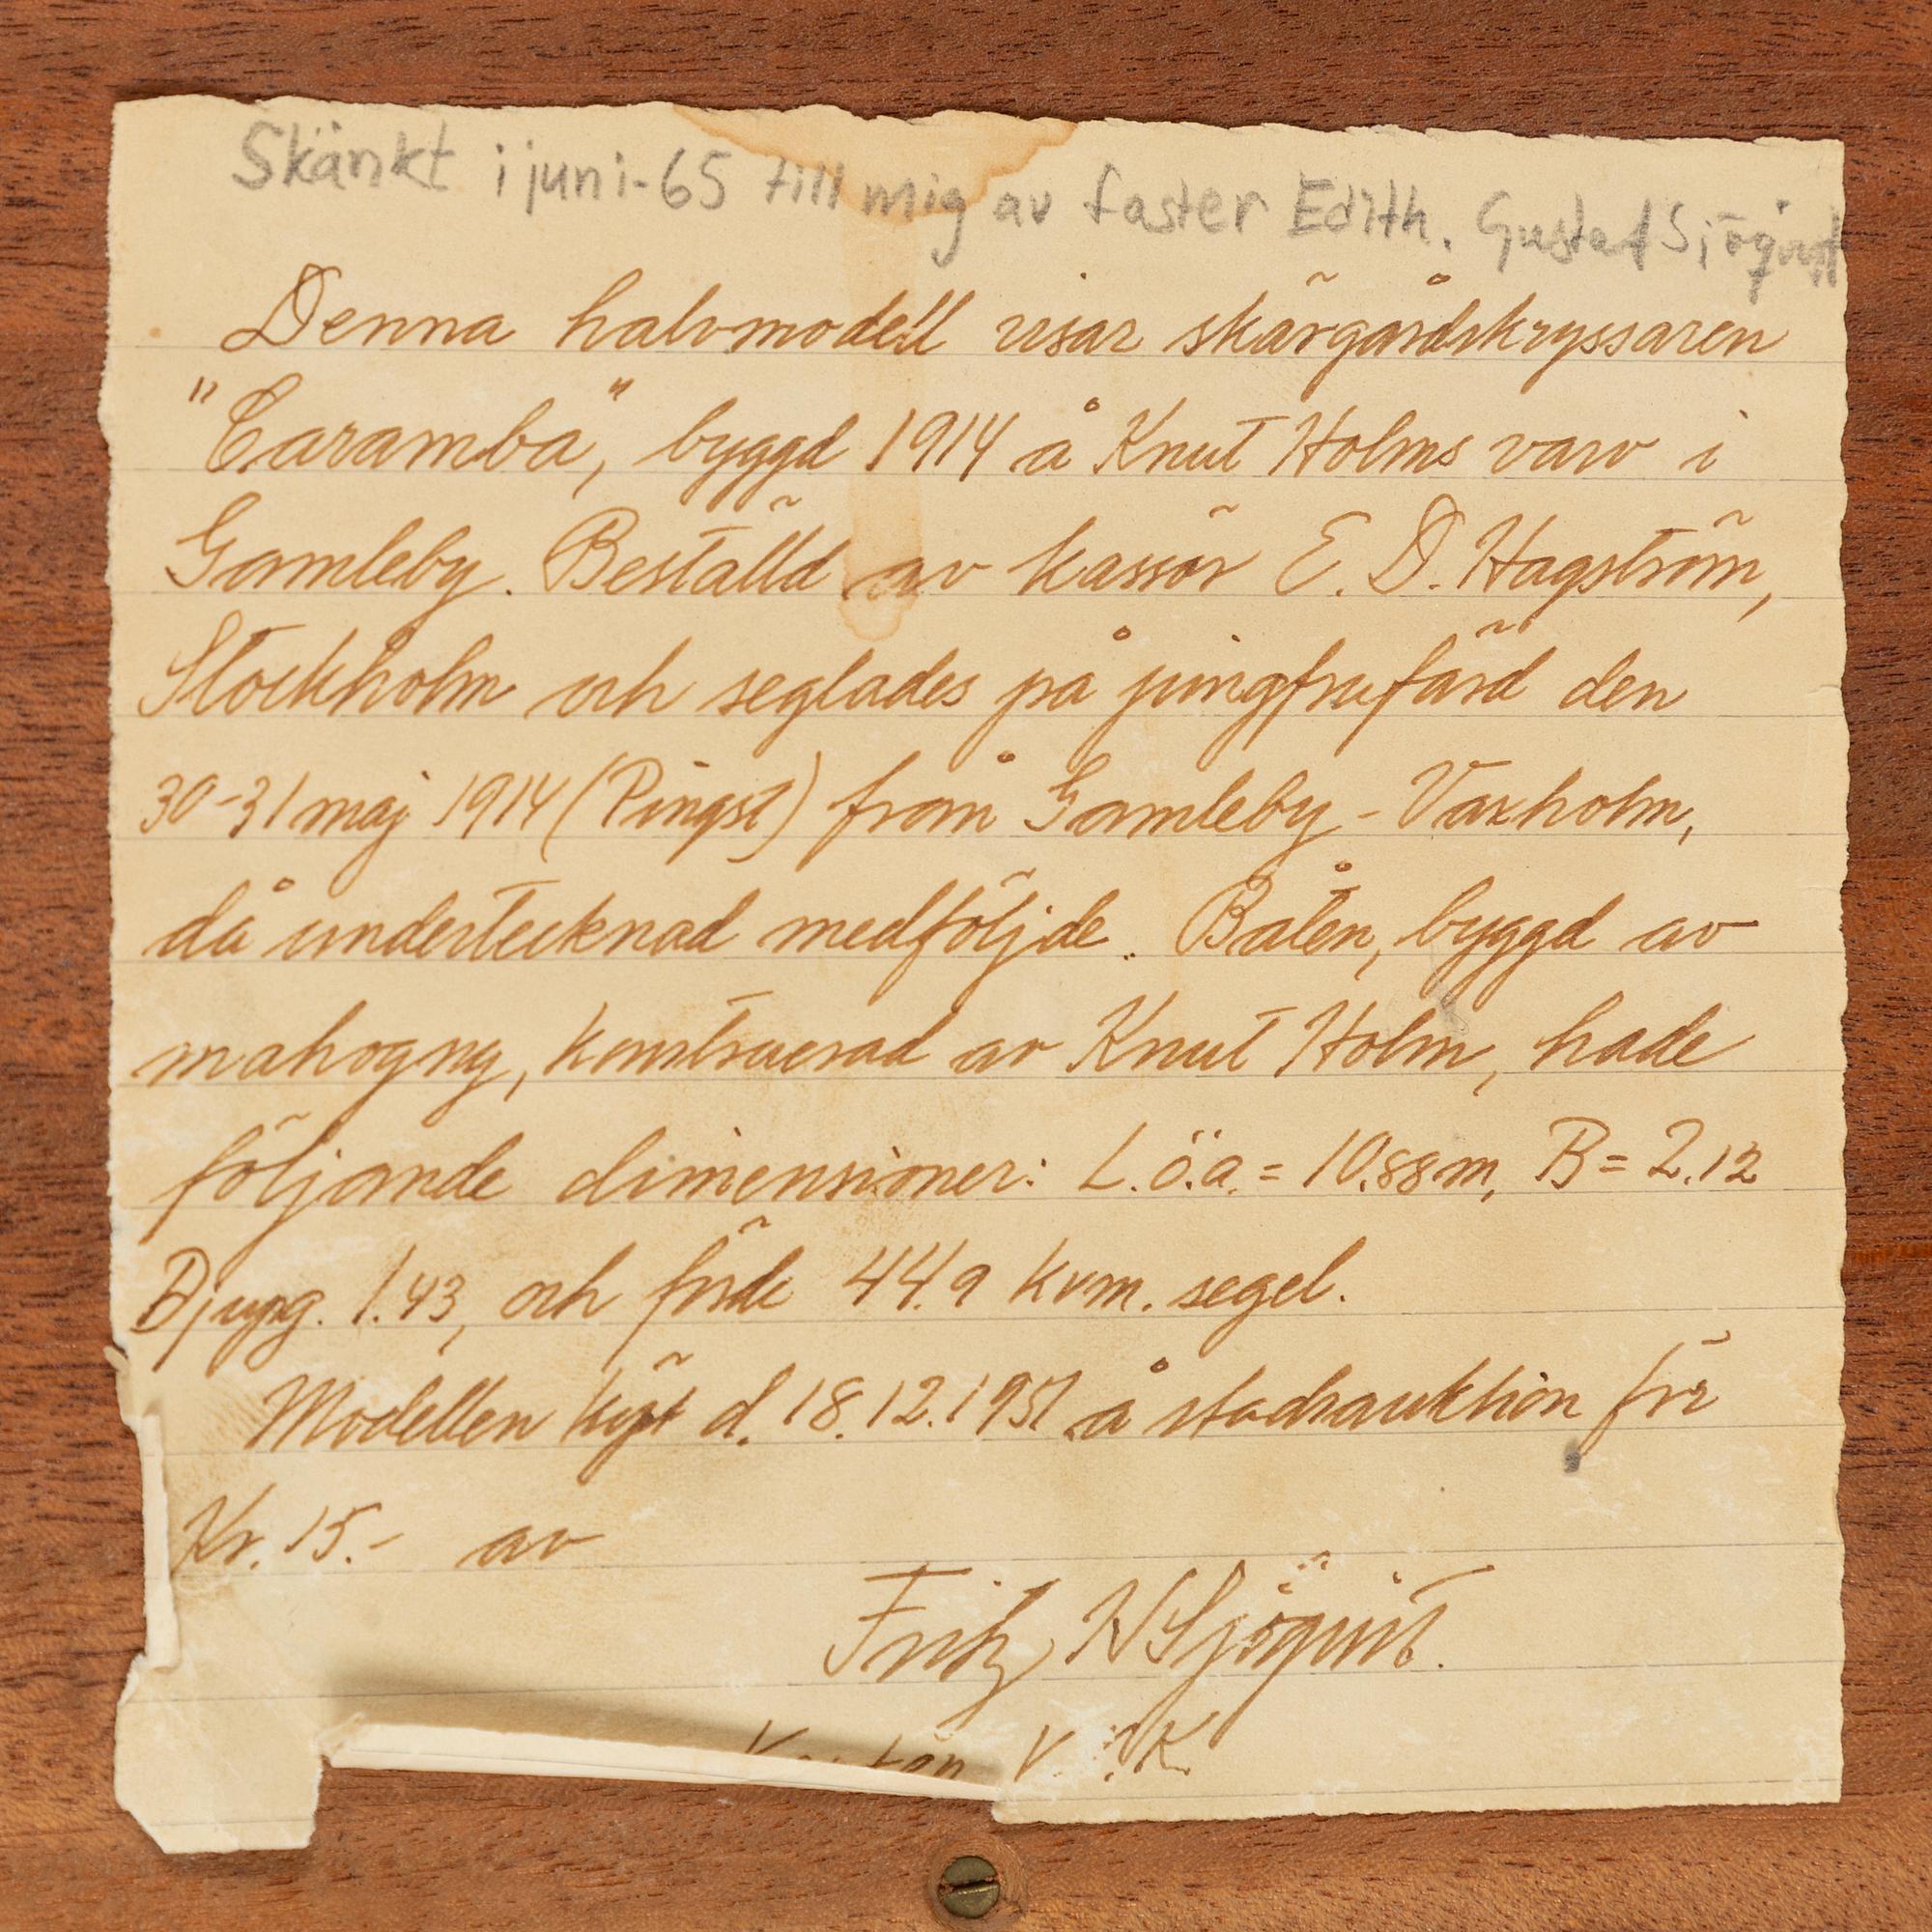 Skänkt i juni-65 till mig av faster Edith. Gustaf Sjöqvist
Denna halvmodell visar skärgårdskryssaren
"Caramba", byggd 1914 å Knut Holms varv i
Gamleby. Beställd av kassör E. D. Hagström,
Stockholm och seglades på jungfrufärd den
30-31 maj 1914 (Pingst) från Gamleby - Vaxholm,
då undertecknad medföljde. Båten, byggd av
mahogny, konstruerad av Knut Holm, hade
följande dimensioner: L.ö.a. = 10.88m, B = 2.12
Djupg. 1.43, och förde 44.9 kvm. segel.
Modellen köpt d. 18.12.1951 å stadsauktion för
Kr. 15.- av
Fritz W Sjöqvist.